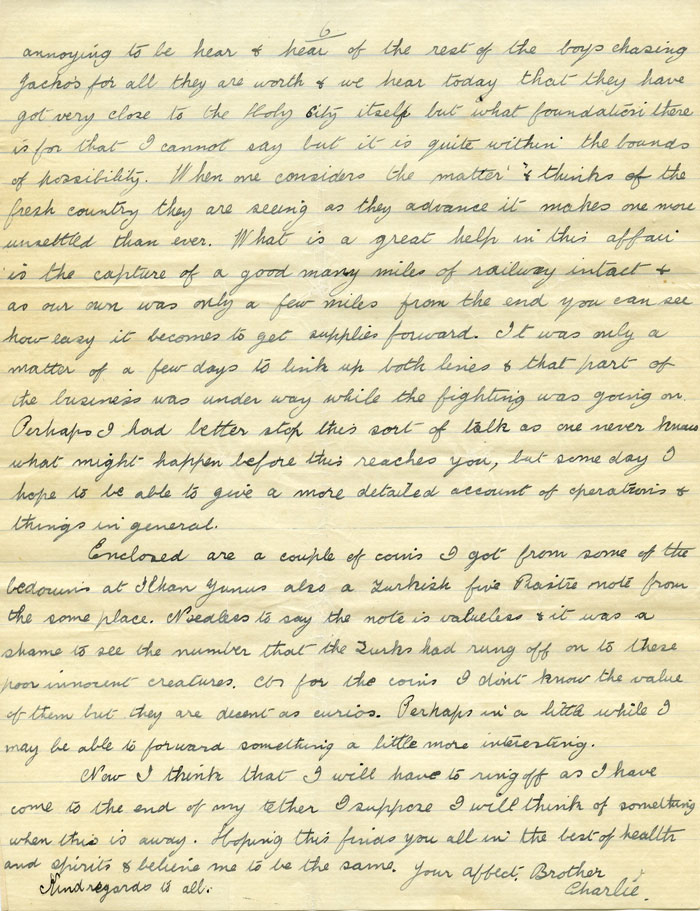 6.
annoying to be hear & hear of the rest of the boys chasing
Jacko's for all they are worth & we hear today that they have
got very close to the Holy City itself but what foundation there
is for that I cannot say but it is quite within the bounds
of possibility. When one considers the matter & thinks of the
fresh country they are seeing as they advance it makes one more
unsettled than ever. What is a great help in this affair
is the capture of a good many miles of railway intact &
as our own was only a few miles from the end you can see
how easy it becomes to get supplies forward. It was only a
matter of a few days to link up both lines & that part of
the business was under way while the fighting was going on.
Perhaps I had better stop this sort of talk as one never knows
what might happen before this reaches you, but some day I
hope to be able to give a more detailed account of operations &
things in general.
Enclosed are a couple of coins I got from some of the
bedouins at Khan Yunus also a Turkish five Piastre note from
the same place. Needless to say the note is valueless & it was a
shame to see the number that the Turks had rung off on to these
poor innocent creatures. As for the coins I don't know the value
of them but they are decent as curios. Perhaps in a little while I
may be able to forward something a little more interesting.
Now I think that I will have to ring off as I have
come to the end of my tether I suppose I will think of something
when this is away. Hoping this finds you all in the best of health
and spirits & believe me to be the same. Your affect. Brother
Kind regards to all. Charlie.